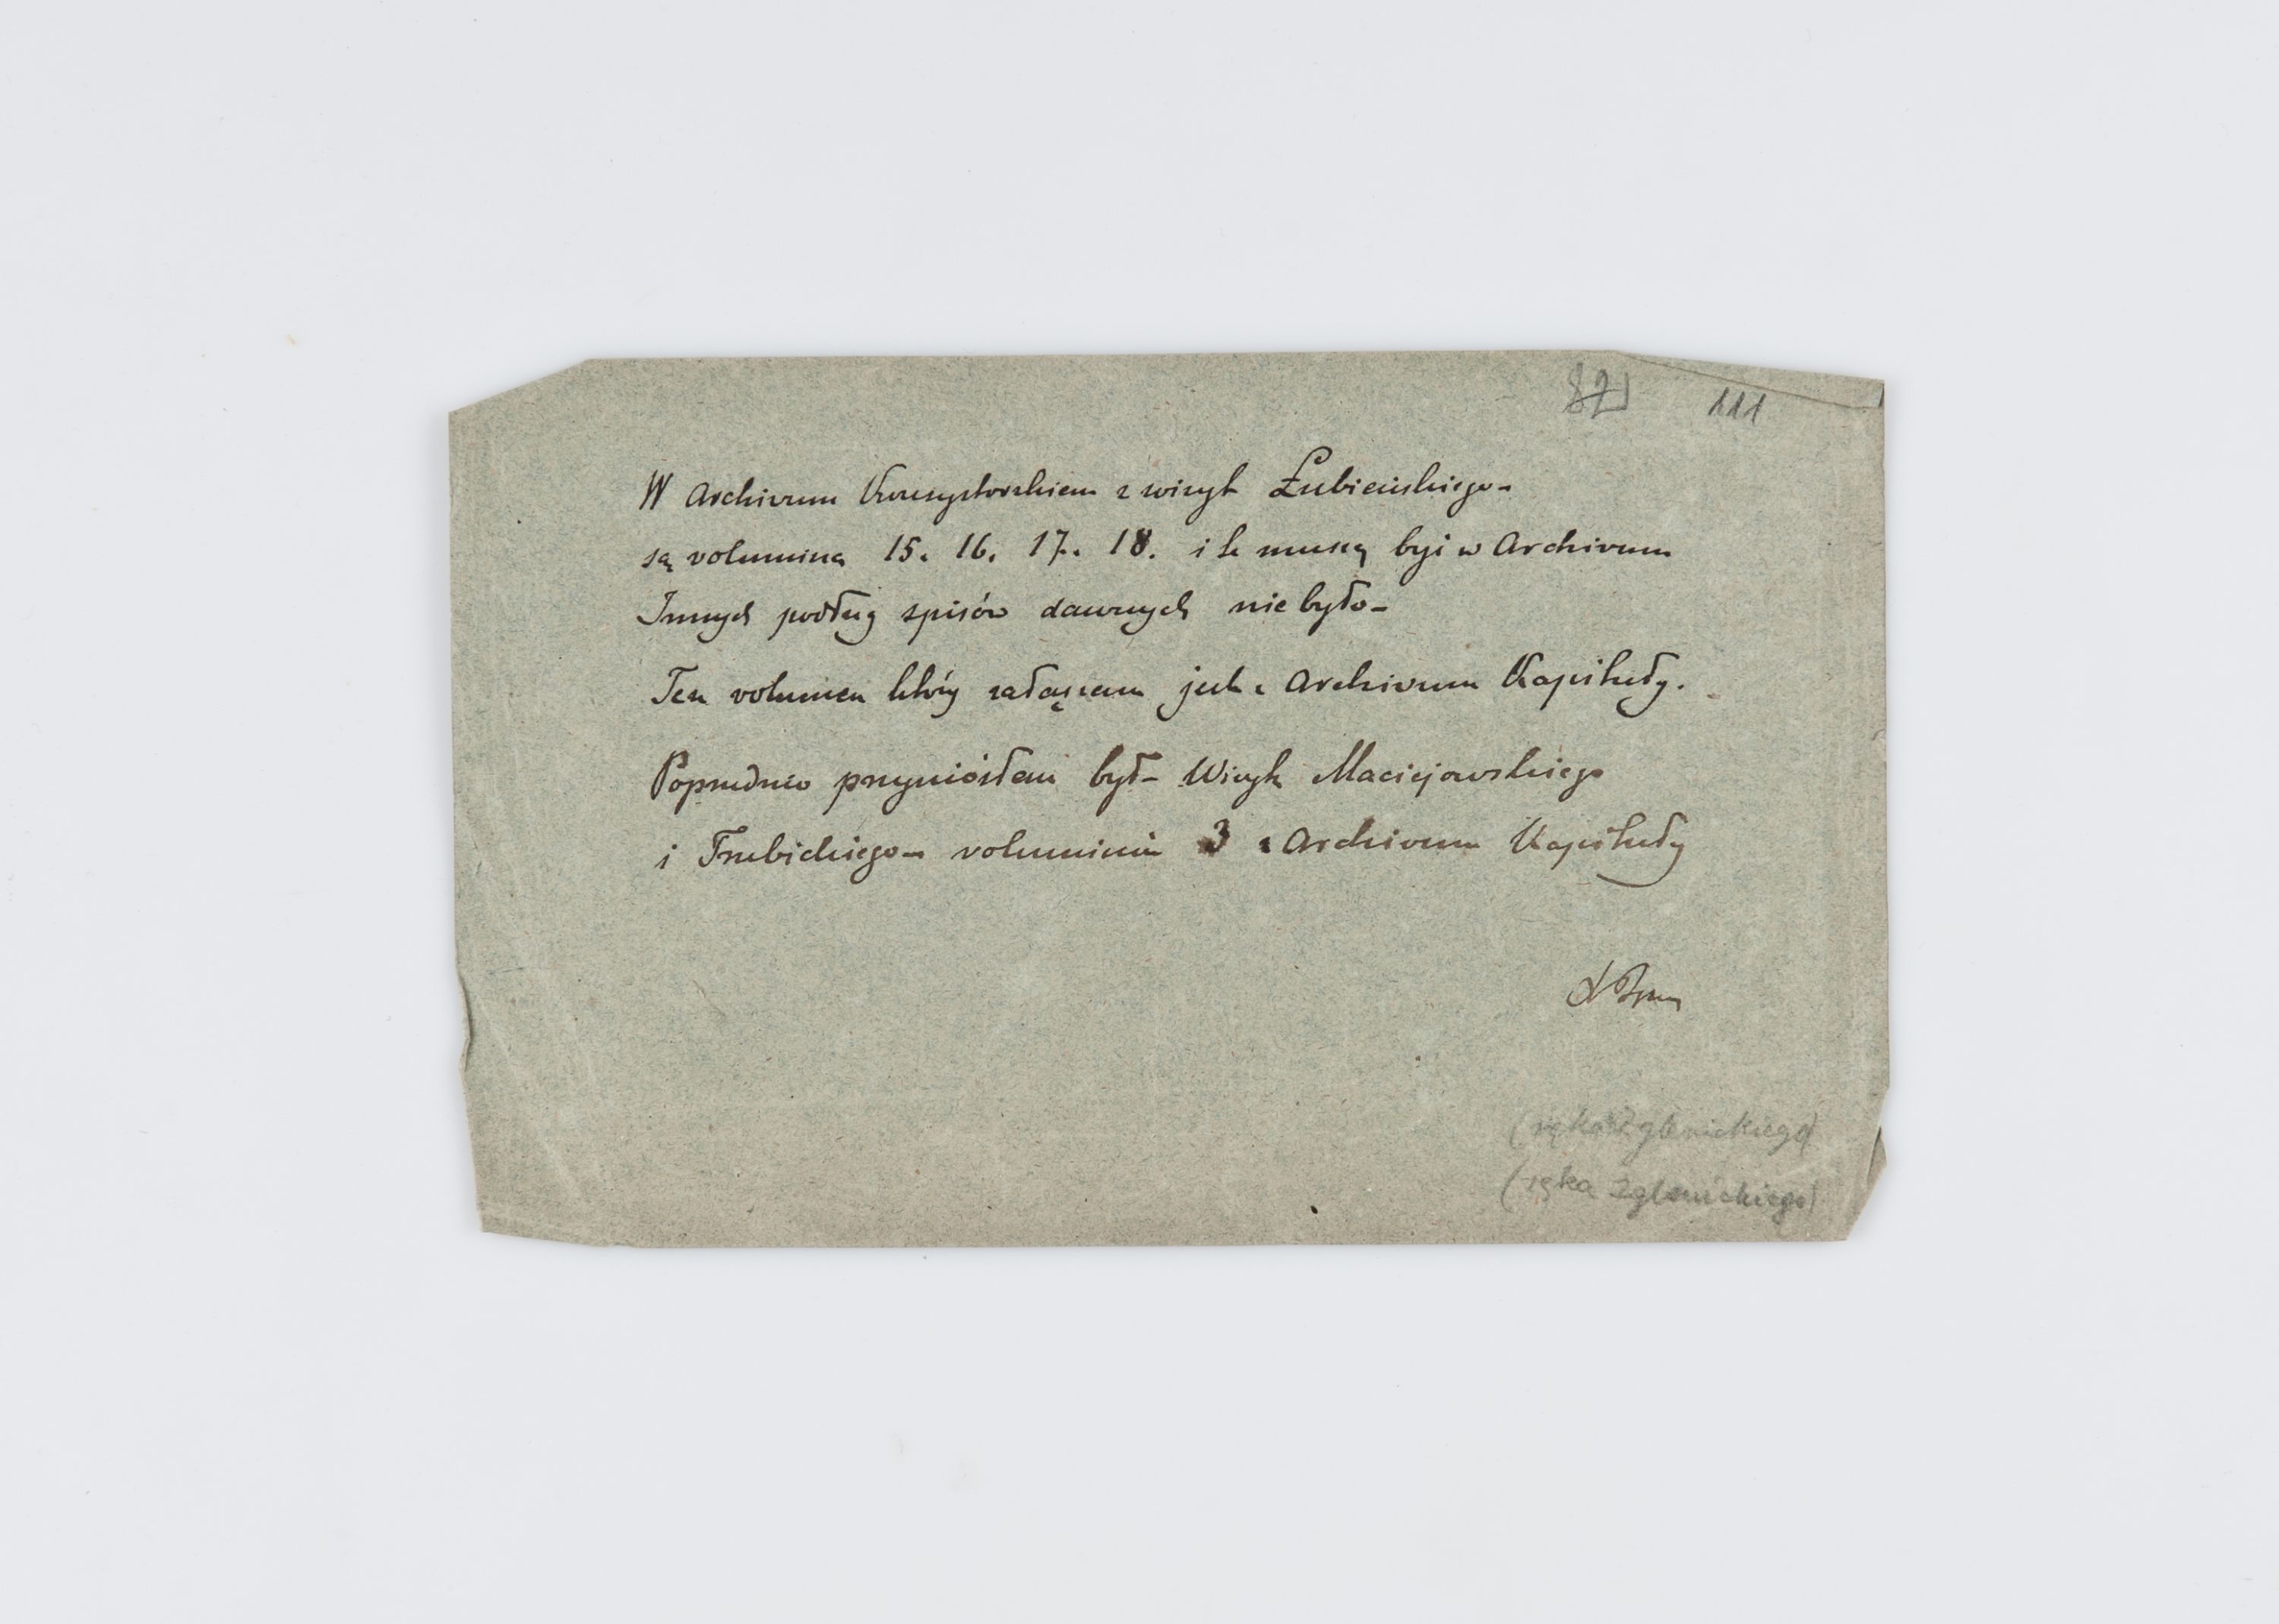 87 111
W Archivum Konsystorskiem z wizyt Łubieńskiego
są volumina 15. 16. 17. 18. i te muszą być w Archivum
Innych podług spisów dawnych nie było
Ten volumen który załączam jest z Archivum Kapituły.
Poprzednio przyniósłem był Wizyt Maciejowskiego
i Trzebickiego voluminów 3 z Archivum Kapituły
(ręka Zglenickiego)
(ręka Zglenickiego)